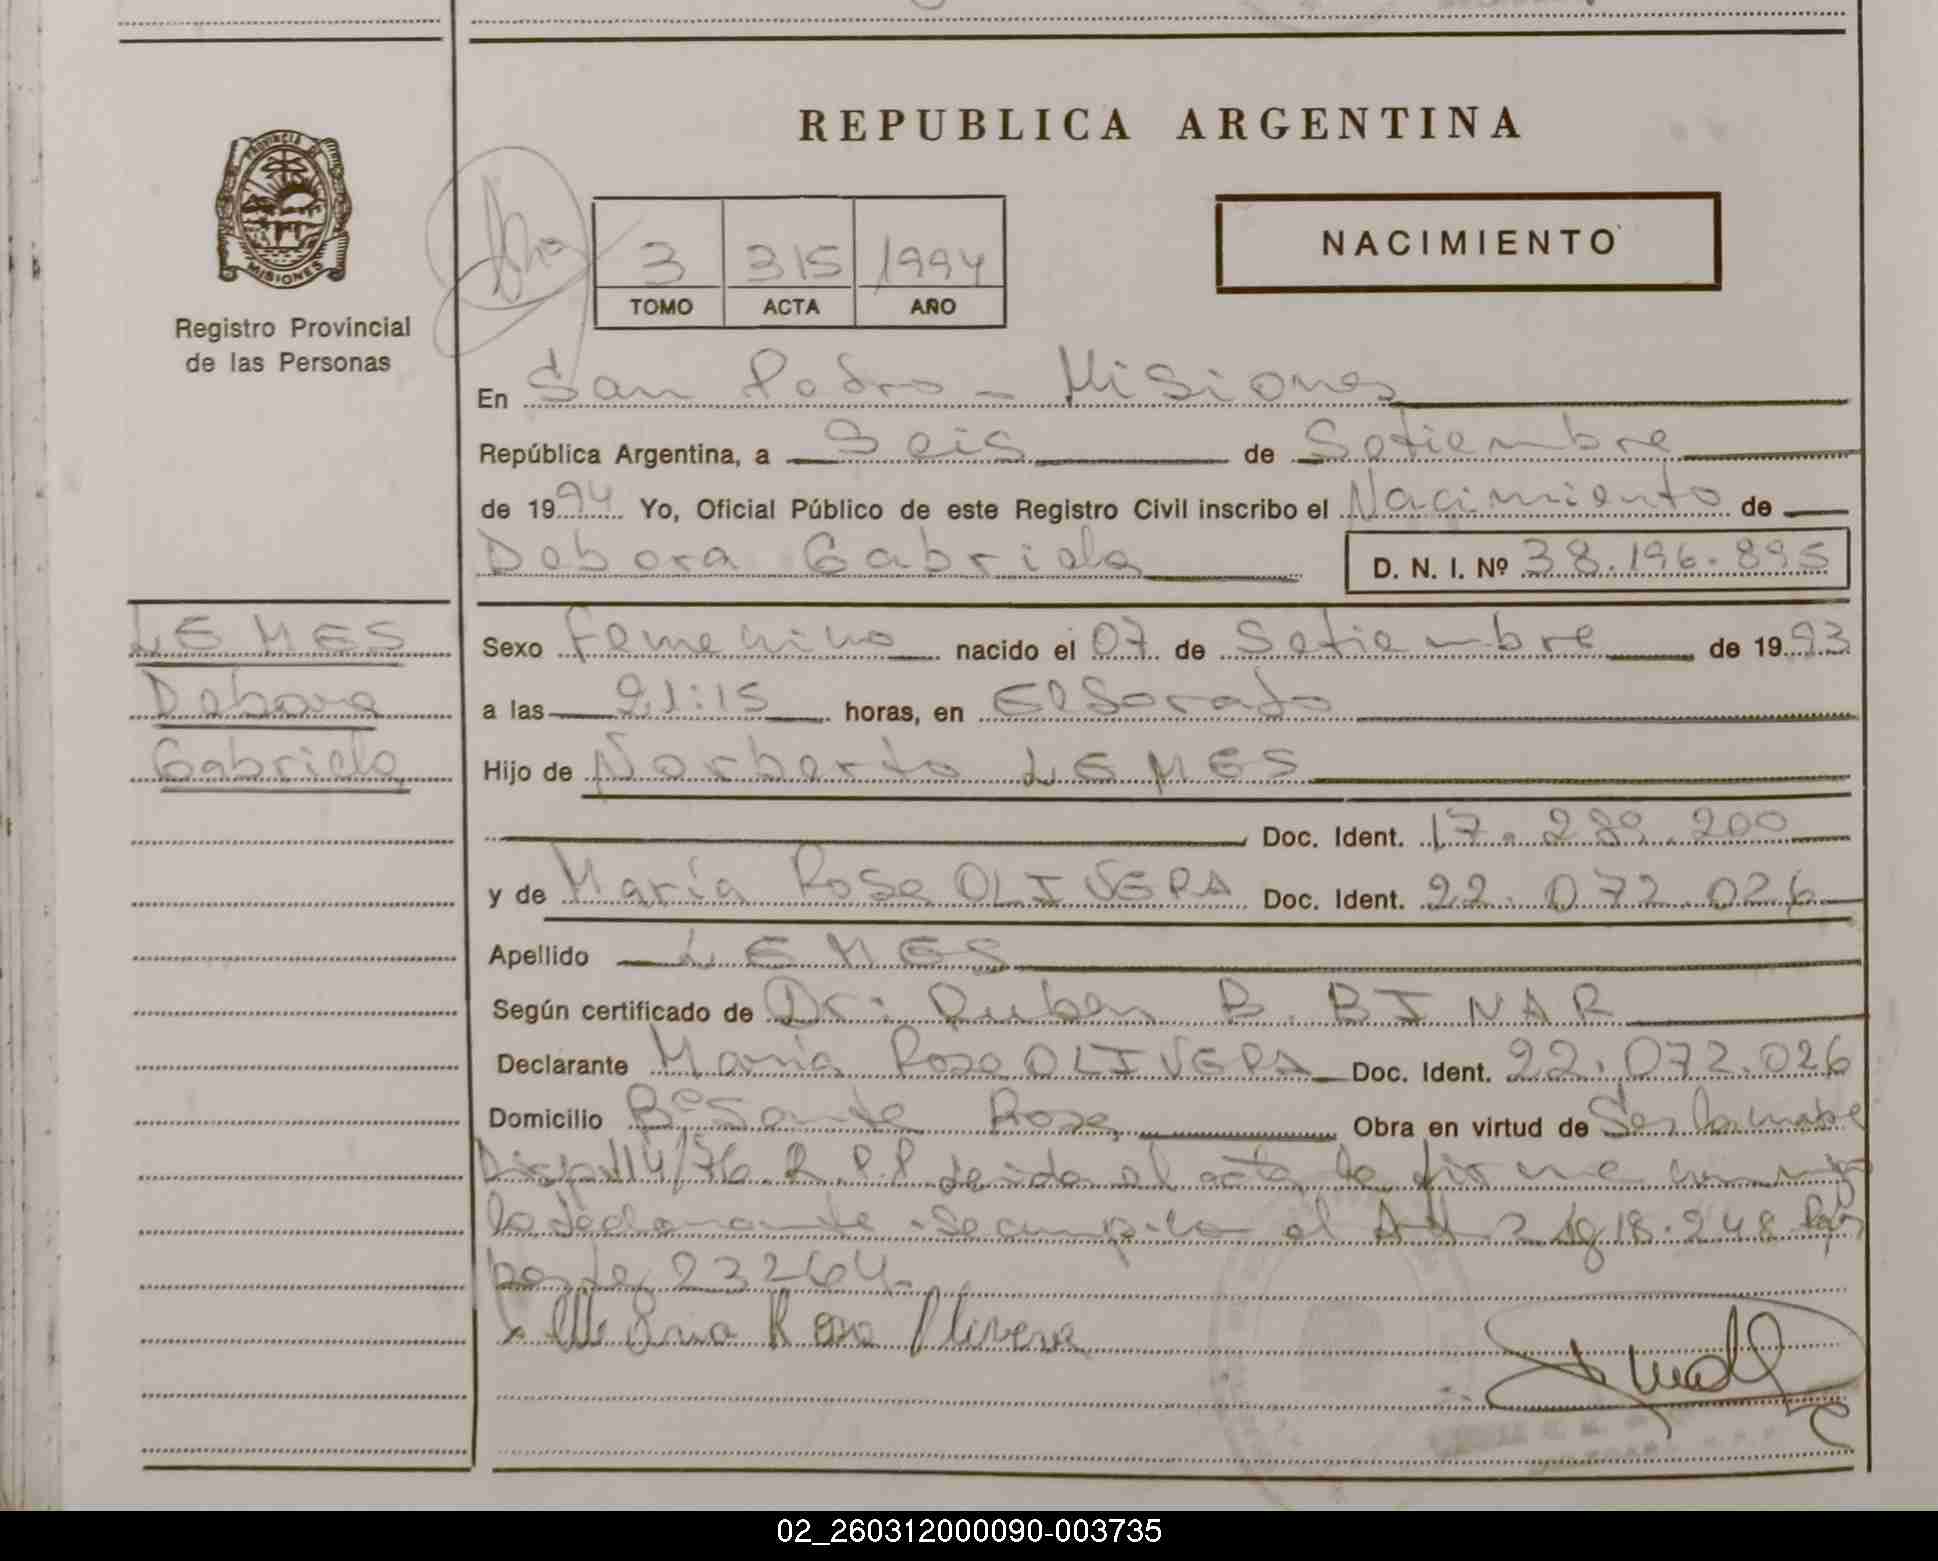 REPUBLICA ARGENTINA
PROVINCIA DE
MISIONES
Registro Provincial
de las Personas
3 315 1994
TOMO ACTA AÑO
NACIMIENTO
En San Pedro - Misiones
República Argentina, a Seis de Setiembre
de 1994 Yo, Oficial Público de este Registro Civil inscribo el Nacimiento de
Debora Gabriela D. N. I. Nº 38.196.895
LEMES
Debora
Gabriela
Sexo femenino nacido el 07 de Setiembre de 1993
a las 21:15 horas, en Eldorado
Hijo de Norberto LEMES
Doc. Ident. 17.289.200
y de María Rosa OLIVERA Doc. Ident. 22.072.026
Apellido LEMES
Según certificado de Dr: Ruben B. BINAR
Declarante María Rosa OLIVERA Doc. Ident. 22.072.026
Domicilio Bº Santa Rosa Obra en virtud de Ser la madre
Disp. 114/76 R.P.P leida el acta la firma conmigo
la declarante. Se cumplio el Art 2 18.248
23264.
Maria Rosa Olivera
02_260312000090-003735